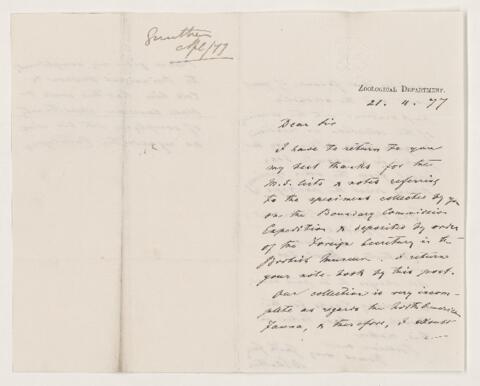 Gunther
Apl/77
ZOOLOGICAL DEPARTMENT.
21. 4. 77
Dear Sir
I have to return to you
my best thanks for the
M.S. lists & notes referring
to the specimens collected by you
on the Boundary Commission
Expedition & deposited by order
of the Foreign Secretary in the
British Museum. I return
your note-book by this post.
Our collection is very incom-
plete as regards the North American
Fauna, & therefore, I